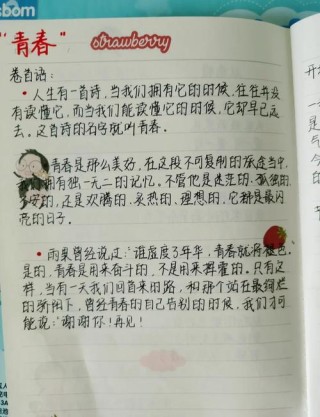 sbom
"青春"
strawberry
卷首语:
• 人生有一首诗,当我们拥有它的时候,往往并没
有读懂它,而当我们能读懂它的时候,它却早已远
去。这首诗的名字就叫青春。
青春是那么美好,在这段不可复制的旅途当中,
拥有独一无二的记忆。不管它是迷茫的、孤独的、
的,还是欢腾的、炙热的、理想的,它都是最闪
亮的日子。
• 雨果曾经说过:谁虚度了年华,青春就将褪色
是的,青春是用来奋斗的,不是用来挥霍的。只有这
样,当有一天我们回首来时路,和那个站在最绚烂
的骄阳下,曾经青春的自己告别的时候,我们才可
能说:谢谢你!再见!